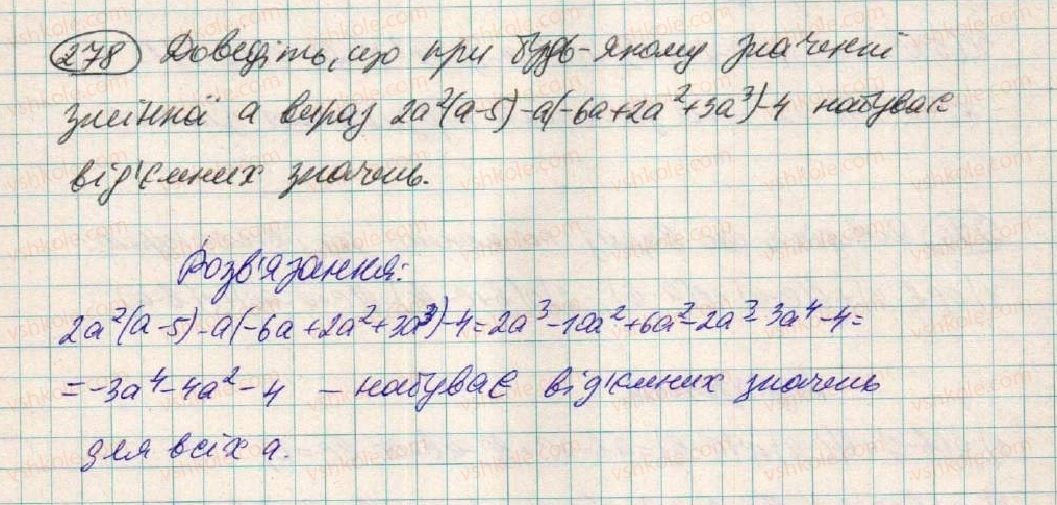 278 Доведіть, що при будь-якому значенні
змінної а вираз 2a²(a-5)-a(-6a+2a²+3a³)-4 набуває
від'ємних значень.
Розв'язання:
2a²(a-5)-a(-6a+2a²+3a³)-4=2a³-10a²+6a²-2a³-3a⁴-4=
=-3a⁴-4a²-4 - набуває від'ємних значень
для всіх а.